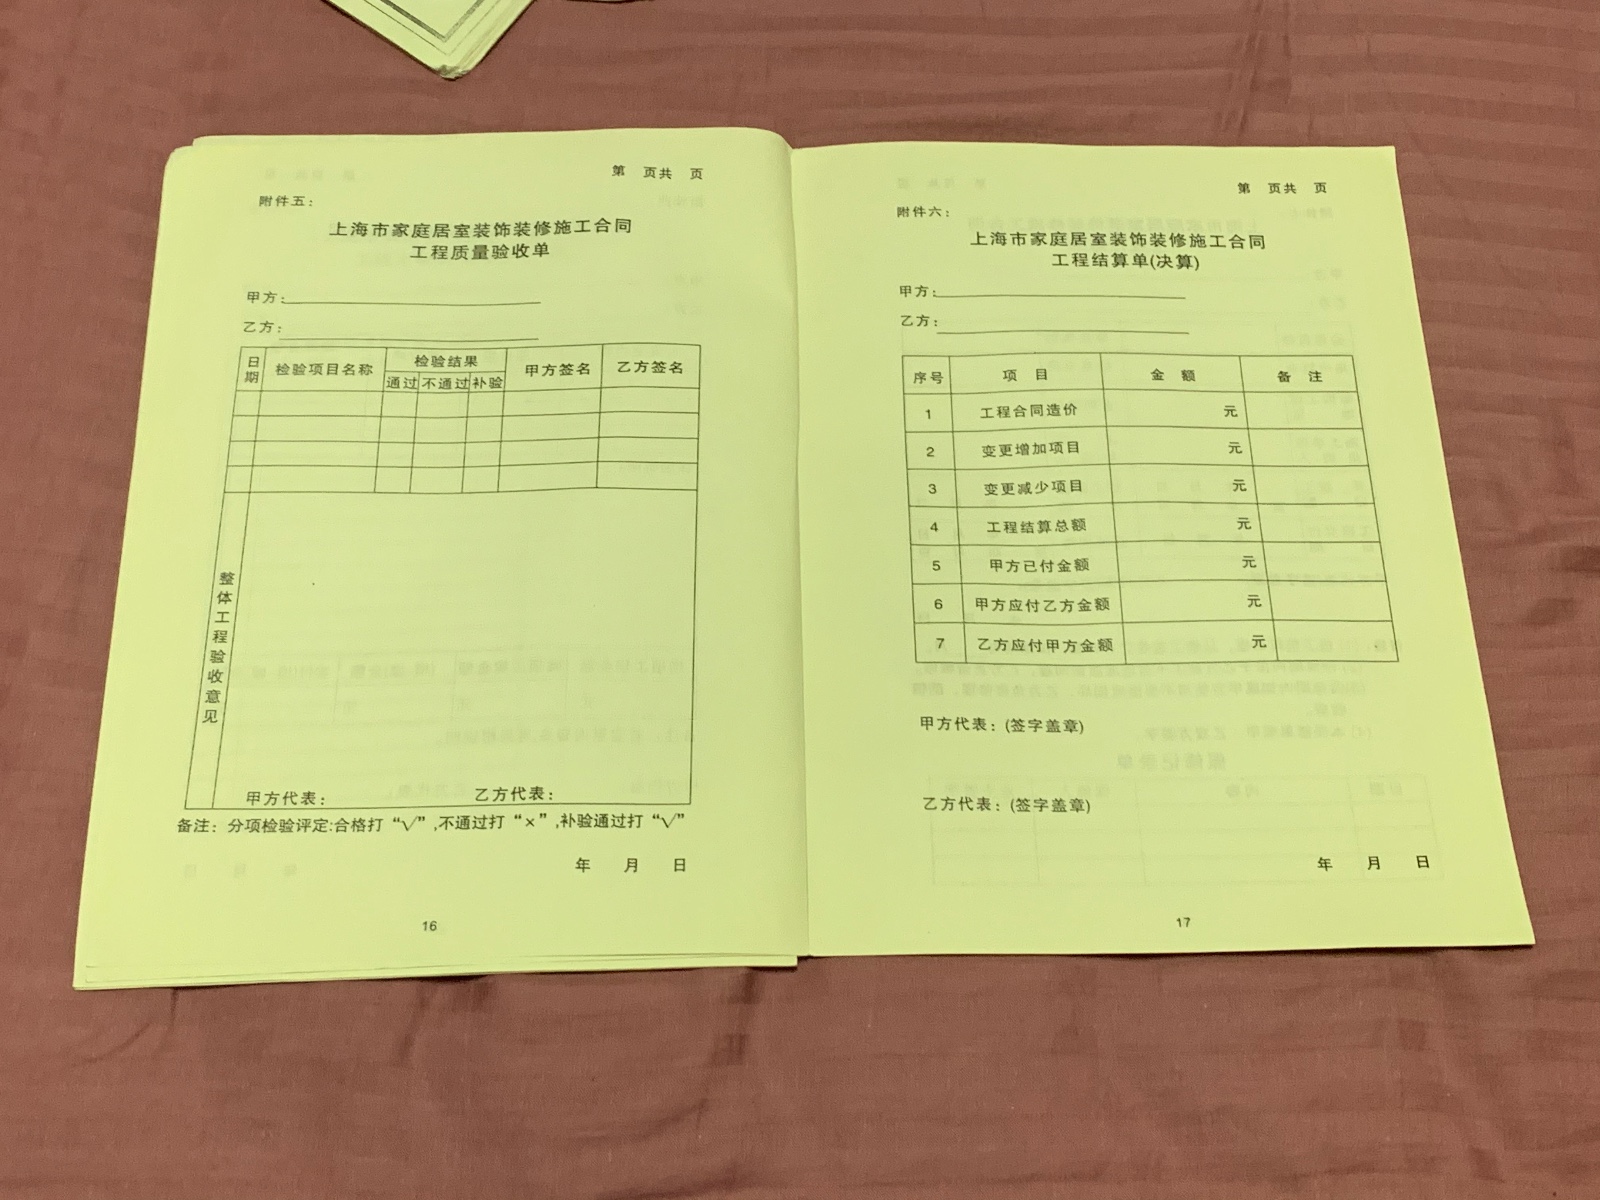 第　页共　页
附件五：
上海市家庭居室装饰装修施工合同
工程质量验收单
甲方：
乙方：
日期 检验项目名称 检验结果 甲方签名 乙方签名
通过 不通过 补验
整体工程验收意见
甲方代表： 乙方代表：
备注：分项检验评定:合格打“√”,不通过打“×”,补验通过打“√”
年　月　日
16
第　页共　页
附件六：
上海市家庭居室装饰装修施工合同
工程结算单(决算)
甲方：
乙方：
序号 项　目 金　额 备　注
1 工程合同造价 元
2 变更增加项目 元
3 变更减少项目 元
4 工程结算总额 元
5 甲方已付金额 元
6 甲方应付乙方金额 元
7 乙方应付甲方金额 元
甲方代表：(签字盖章)
乙方代表：(签字盖章)
年　月　日
17